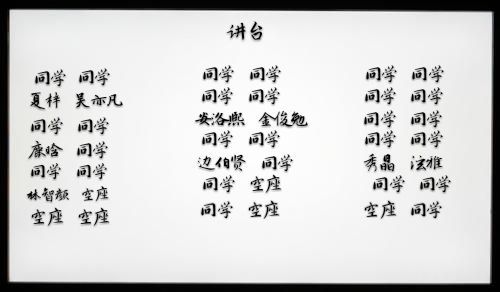 讲台
同学 同学
夏梓 吴亦凡
同学 同学
康晗 同学
同学 同学
林智颜 空座
空座 空座
同学 同学
同学 同学
安洛熙 金俊勉
同学 同学
边伯贤 同学
同学 空座
同学 空座
同学 同学
同学 同学
同学 同学
同学 同学
秀晶 法雅
同学 同学
空座 同学